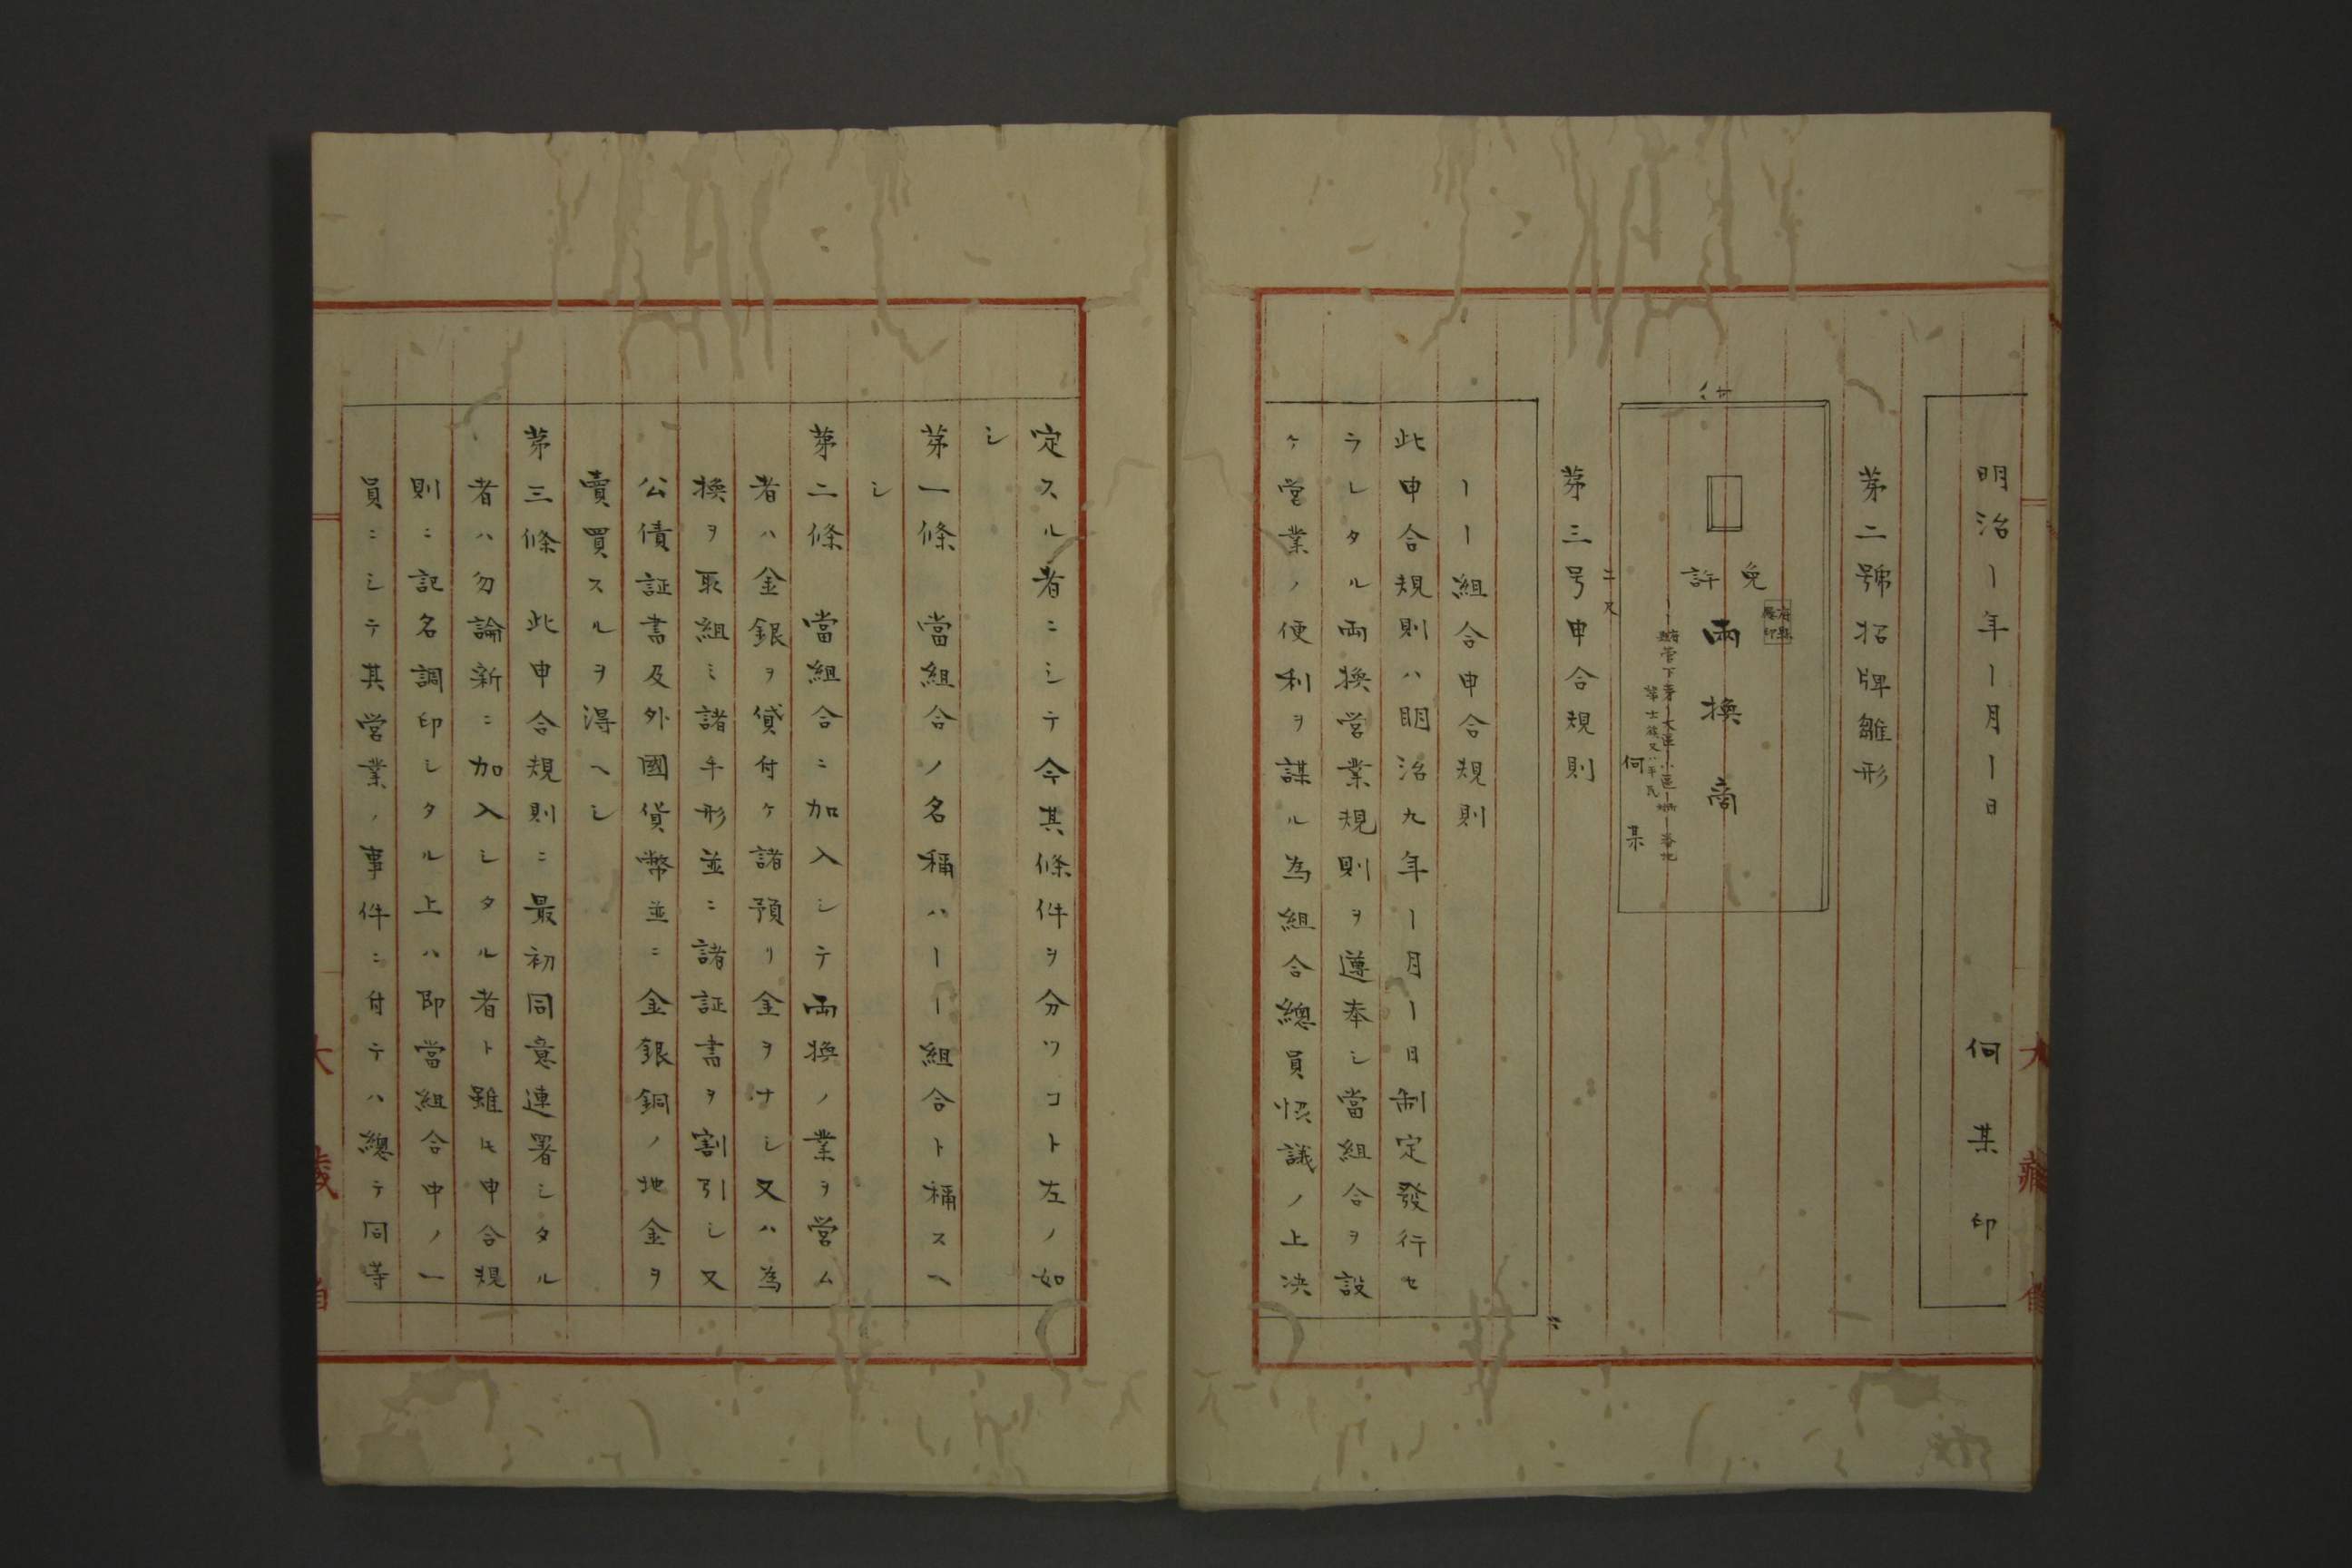 明治ー年ー月ー日　何某印
第二號招牌雛形
免許
両換商
ー府縣管下第ー大區ー小區ー町村ー番地
華士族又ハ平民
何某
二尺
第三号申合規則
ーー組合申合規則
此申合規則ハ明治九年ー月ー日制定發行セ
ラレタル両換営業規則ヲ遵奉シ當組合ヲ設
ケ営業ノ便利ヲ謀ル為組合總員協議ノ上决
定スル者ニシテ今其條件ヲ分ツコト左ノ如
シ
第一條　當組合ノ名稱ハーー組合ト稱スヘ
シ
第二條　當組合ニ加入シテ両換ノ業ヲ営ム
者ハ金銀ヲ貸付ケ諸預リ金ヲナシ又ハ為
換ヲ取組ミ諸手形並ニ諸証書ヲ割引シ又
公債証書及外國貨幣並ニ金銀銅ノ地金ヲ
賣買スルヲ得ヘシ
第三條　此申合規則ニ最初同意連署シタル
者ハ勿論新ニ加入シタル者ト雖圧申合規
則ニ記名調印シタル上ハ即當組合中ノ一
員ニシテ其営業ノ事件ニ付テハ總テ同等
大藏省